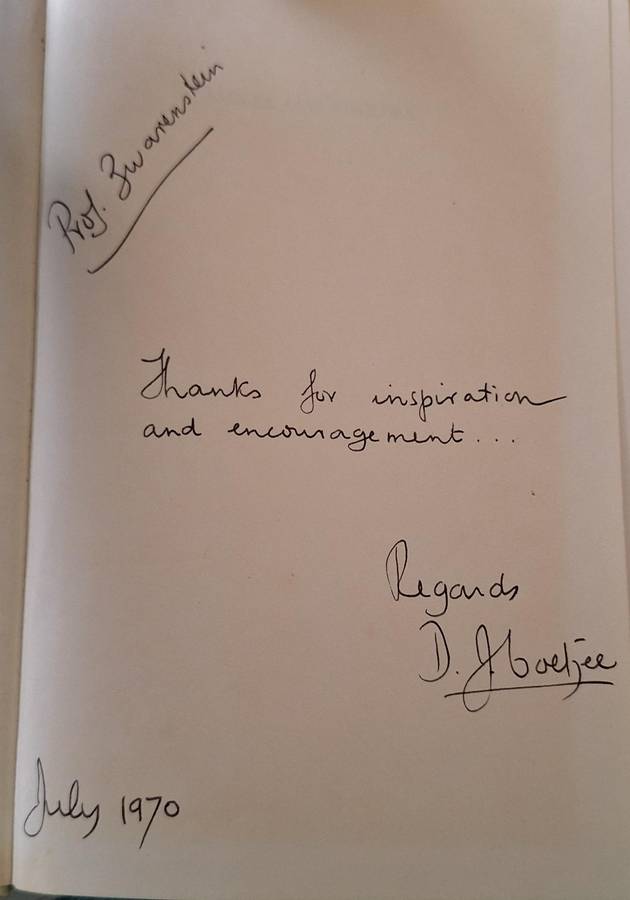 Prof. Zwarenstein
Thanks for inspiration
and encouragement...
Regards
D. J. Coetzee
July 1970